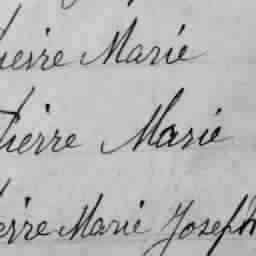 Pierre Marie
Pierre Marie
Pierre Marie Joseph